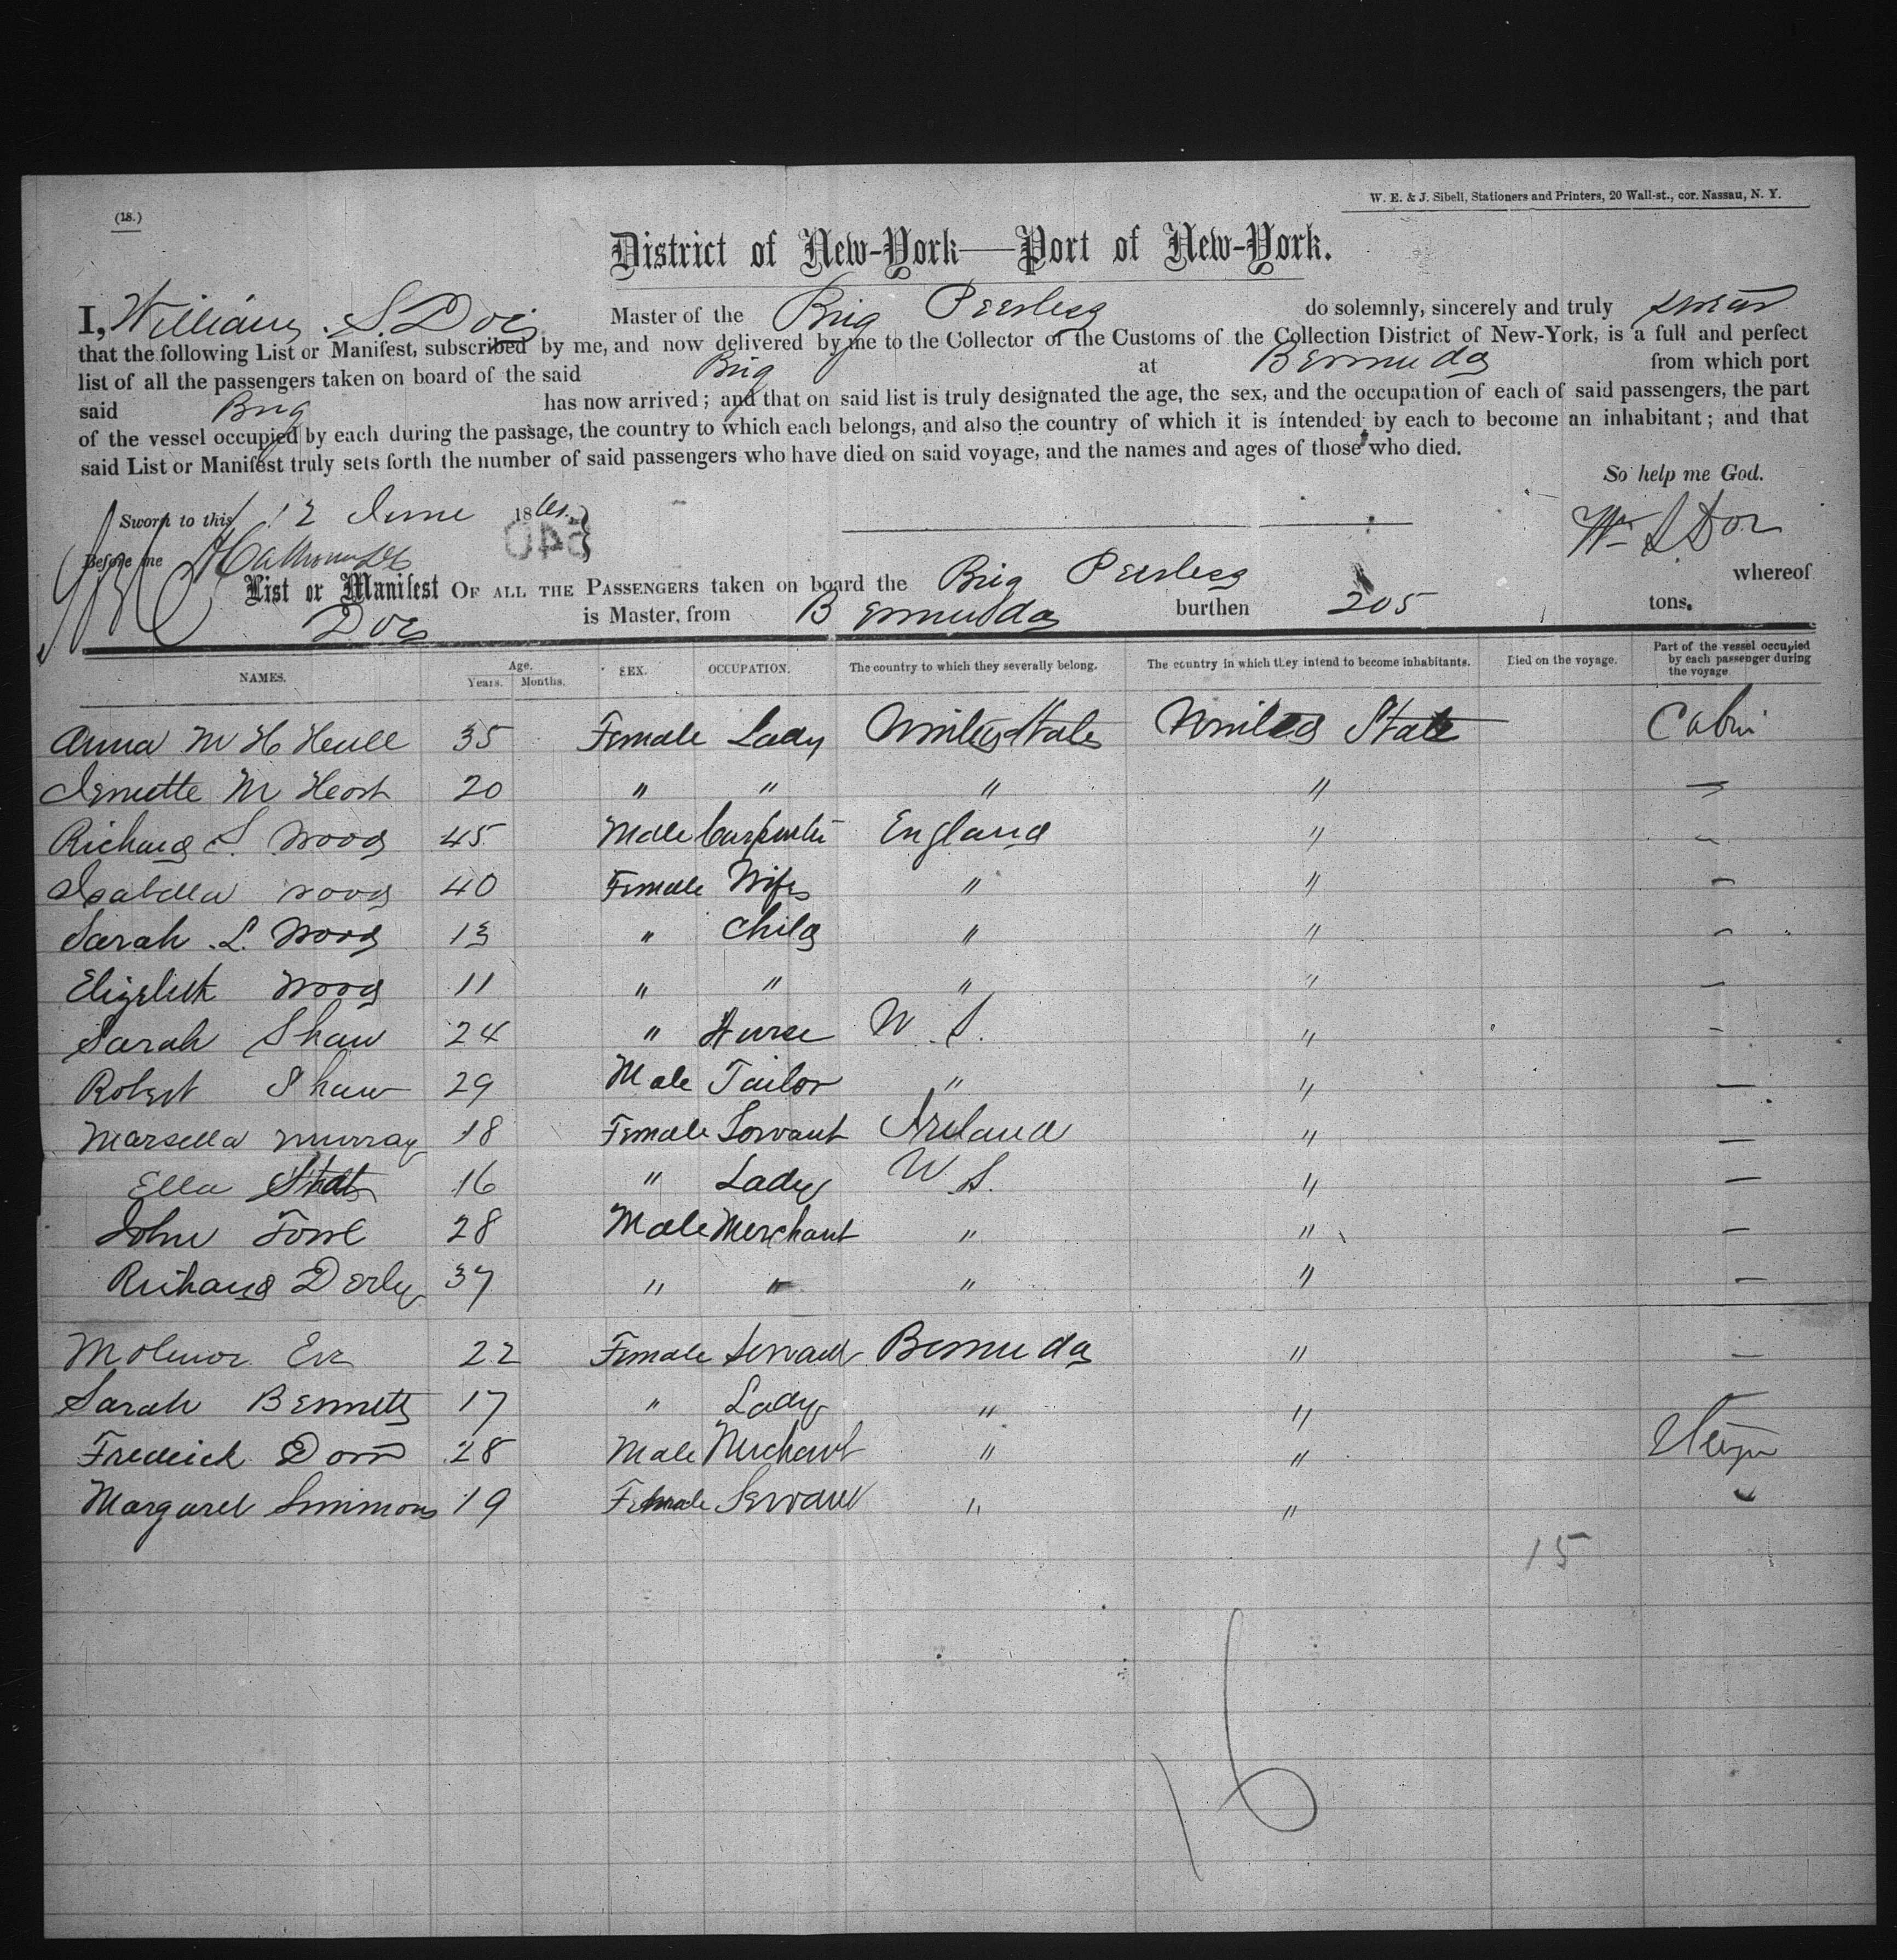 W. E. & J. Sibell, Stationers and Printers, 20 Wall-st., cor. Nassau, N. Y.
(18.)
District of New-York—Port of New-York.
I, William S. Doe Master of the Brig Peerless do solemnly, sincerely and truly swear
that the following List or Manifest, subscribed by me, and now delivered by me to the Collector of the Customs of the Collection District of New-York, is a full and perfect
list of all the passengers taken on board of the said Brig at Bermuda from which port
said Brig has now arrived; and that on said list is truly designated the age, the sex, and the occupation of each of said passengers, the part
of the vessel occupied by each during the passage, the country to which each belongs, and also the country of which it is intended by each to become an inhabitant; and that
said List or Manifest truly sets forth the number of said passengers who have died on said voyage, and the names and ages of those who died.
So help me God.
Sworn to this 12 June 18
Wm S Doe
Before me
List or Manifest OF ALL THE PASSENGERS taken on board the Brig Peerless whereof
Doe is Master, from Bermuda burthen 205 tons.
NAMES. Age. Years. Months. SEX. OCCUPATION. The country to which they severally belong. The country in which they intend to become inhabitants. Died on the voyage. Part of the vessel occupied by each passenger during the voyage
Anna M H 35 Female Lady United States United State Cabin
M 20 " " " "
Richard S. Wood 45 Male Carpenter England "
Isabella Wood 40 Female Wife " " –
Sarah L. Wood 13 " Child " " –
Elizabeth Wood 11 " " " " –
Sarah Shaw 24 " Nurse U S. " –
Robert Shaw 29 Male Tailor " " –
Marsella Murray 18 Female Servant Ireland " –
Ella 16 " Lady U S. " –
John 28 Male Merchant " " –
Richard 37 " " " " –
22 Female Servant Bermuda " –
Sarah Bennett 17 " Lady " "
Frederick 28 Male Merchant " "
Margaret Simmons 19 Female Servant " "
15
16